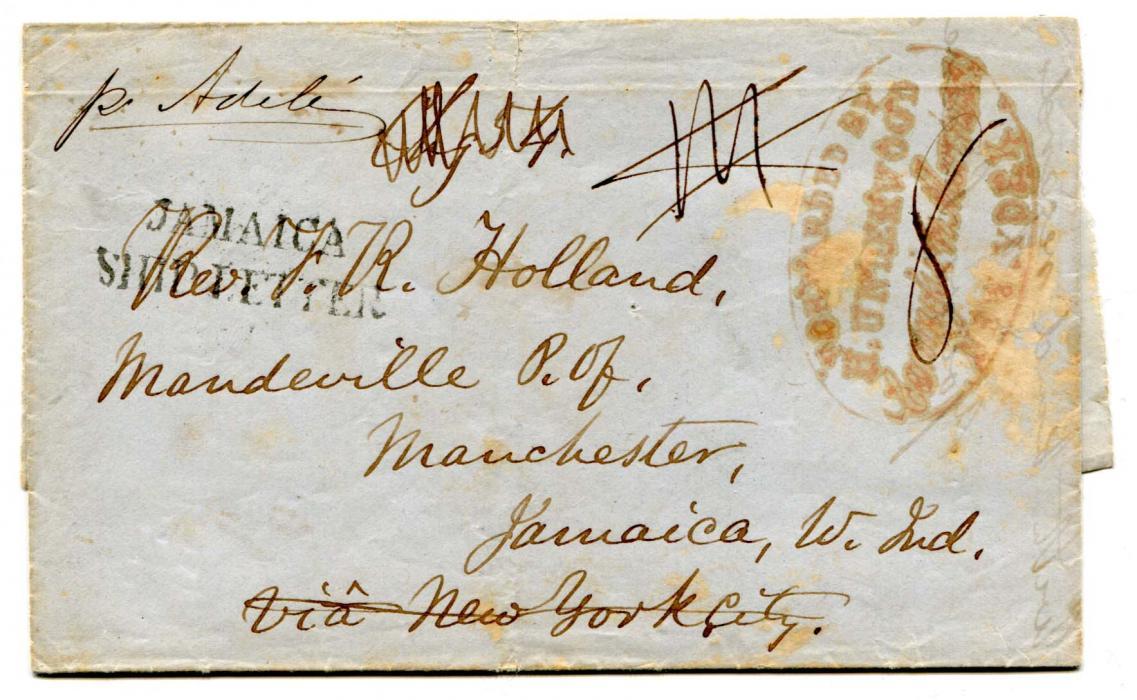 pr. Adele
JAMAICA
SHIP LETTER
Rev. F. R. Holland,
Mandeville P. Of,
Manchester,
Jamaica, W. Ind.
viâ New York City.
8
FORWARDED BY
H. UNDERWOOD
NEW YORK